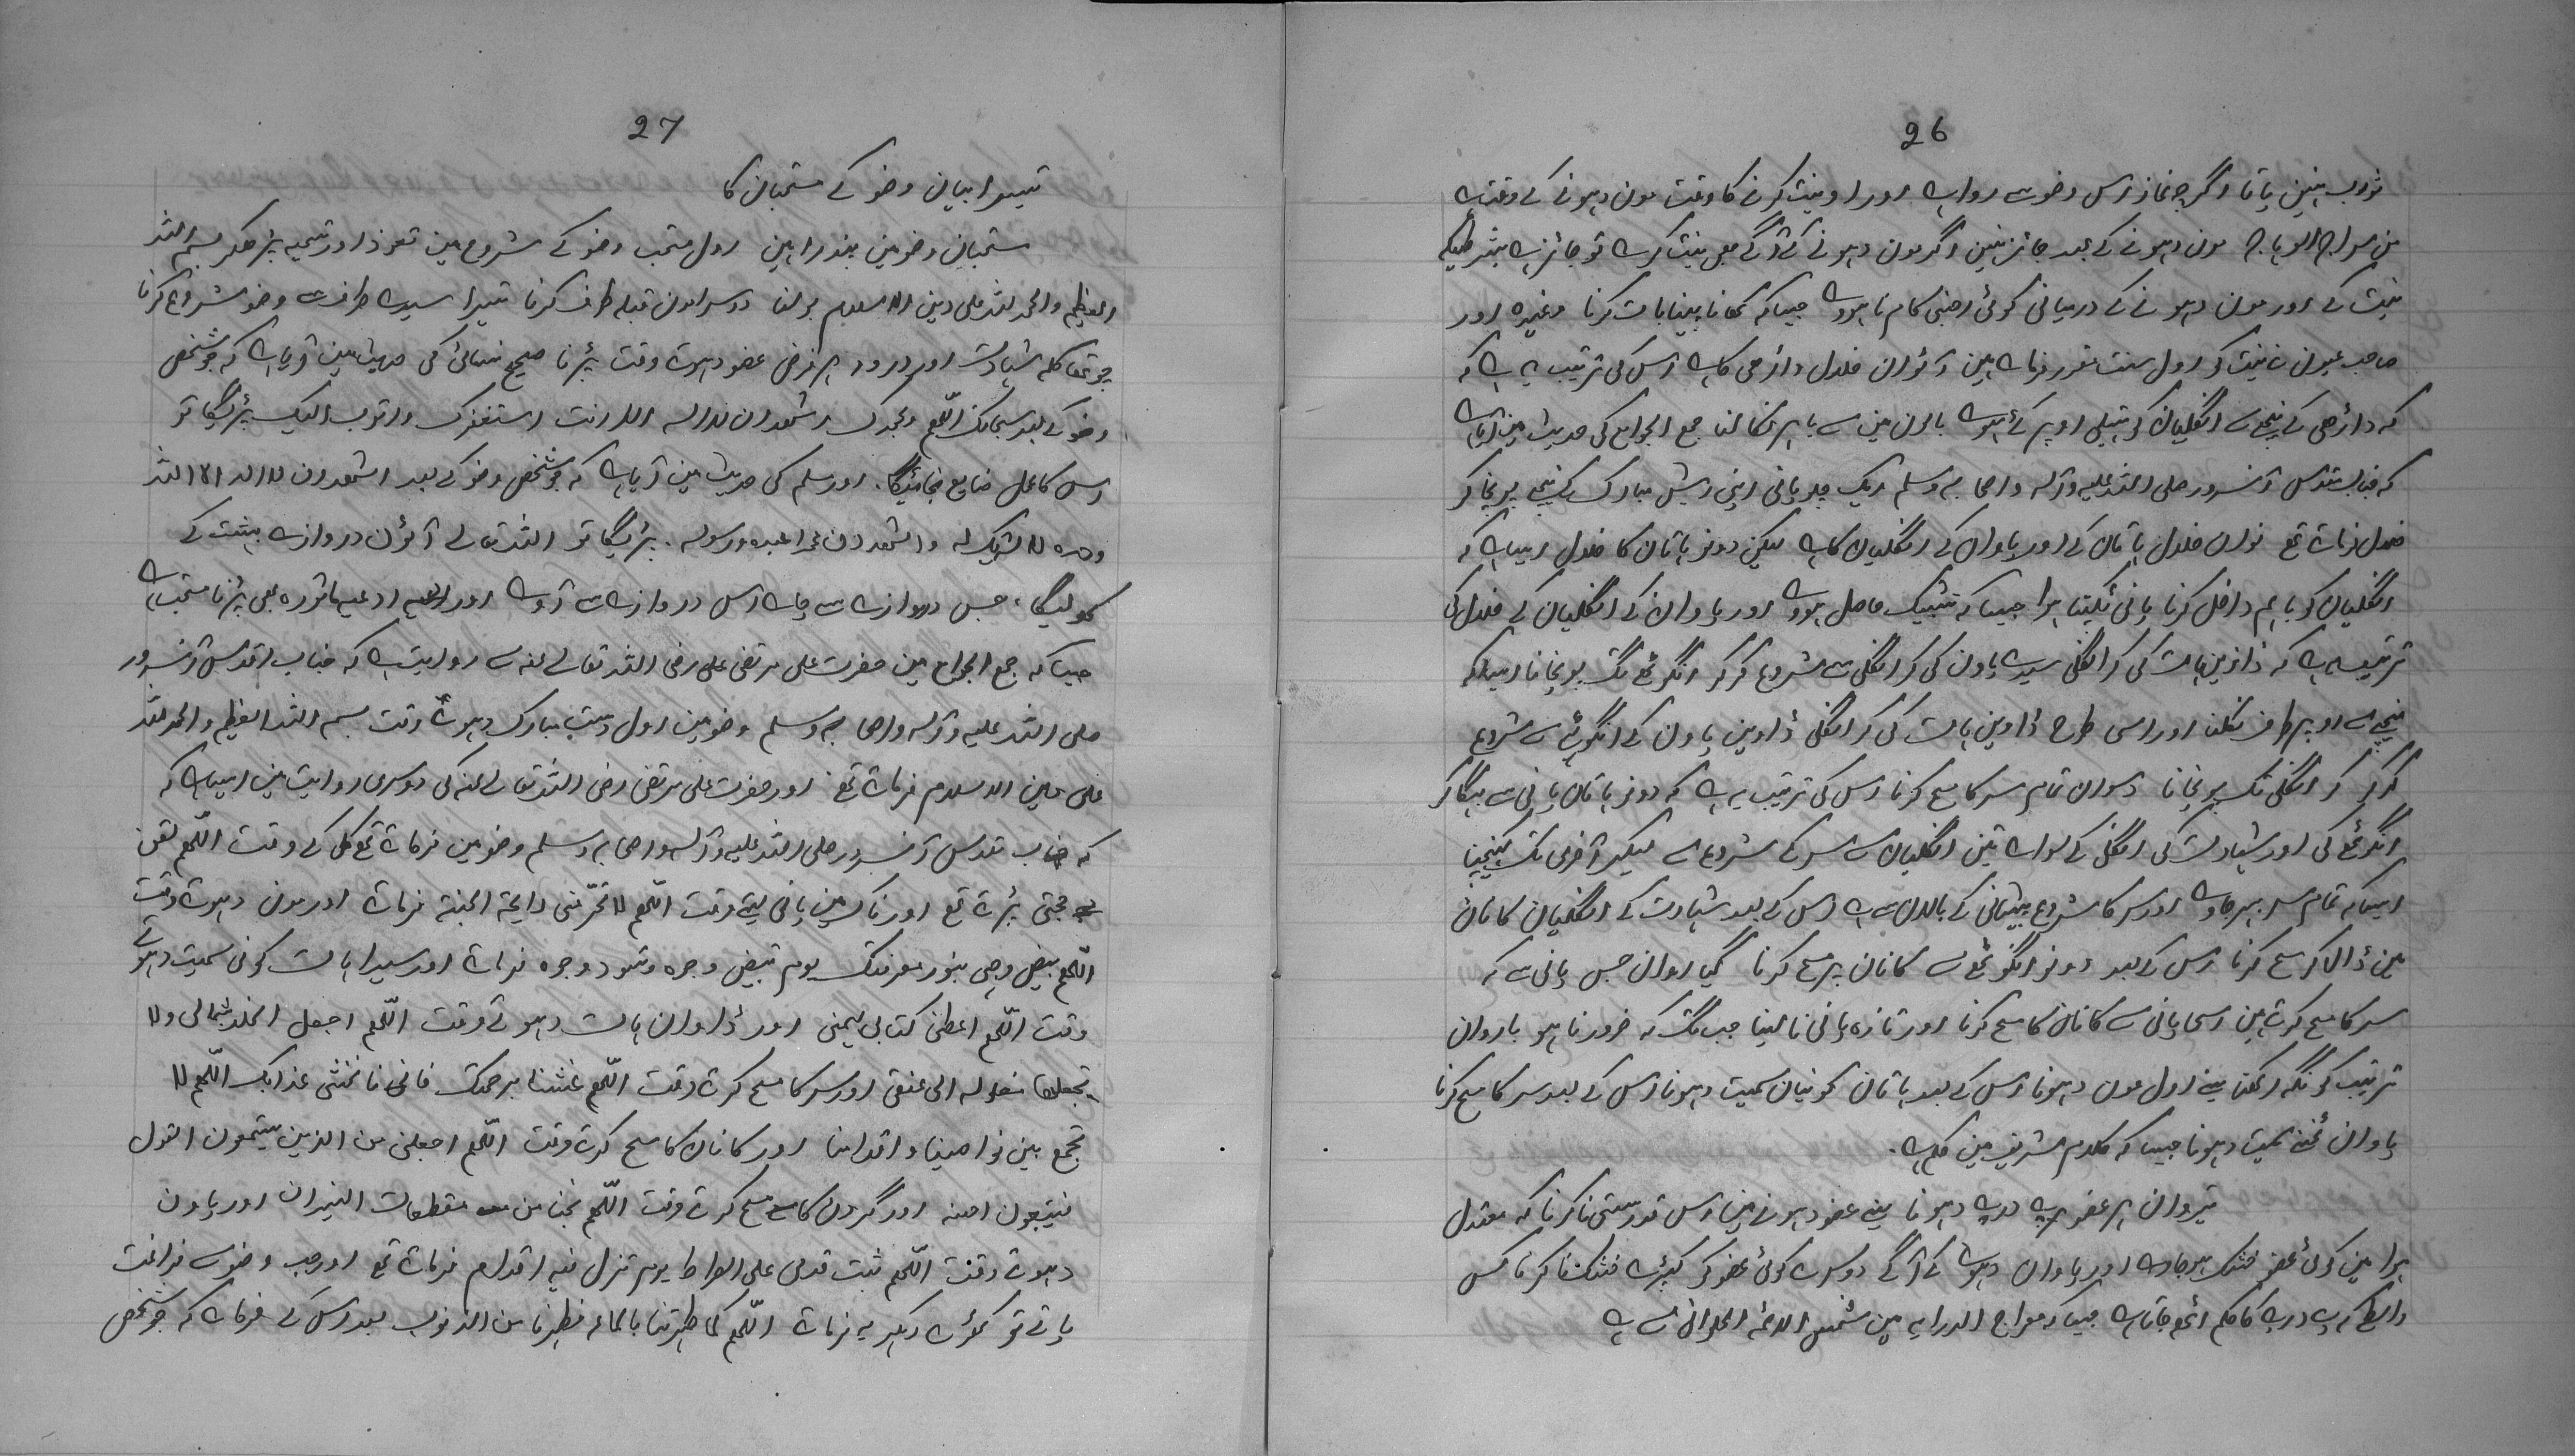 26
ثواب نہین پاتا اگرچہ نماز اس وضو سے روا ہے اور او نیت کرنے کا وقت مون دہونے کے وقت ہے
من سراج الوہاج مون دہونے کے بعد جائز نہین اگر مون دہونے کے آگے بھی نیت کرے تو جائز ہے بشرطیکہ
نیت کے اور مون دہونے کے درمیانی کوئی اجنبی کام نا ہووے جیسا کہ کھانا پینا بات کرنا وغیرہ اور
صاحب عیون نے نیت کو اول سنت مقرر فرمائے ہین آٹوان خلال داڑھی کا ہے اس کی ترتیب یہ ہے کہ
کہ داڑھی کے نیچے سے انگلیان کو ہتیلی اوپر کئے ہوئے بالون مین سے باہر نکالنا جمع الجوامع کی حدیث مین آیا ہے
کہ جناب مقدس آنسرور صلی اللہ علیہ وآلہ واصحابہ وسلم ایک چلو پانی اپنی ریش مبارک کے نیچے پہونچا کر
خلال فرماتے تھے نوان خلال ہاتان کے اور پاوان کے انگلیان کا ہے لیکن دونو ہاتان کا خلال ایسا ہے کہ
انگلیان کو باہم داخل کرنا پانی ٹپکتا ہوا جیسا کہ تشبیک حاصل ہووے اور پاوان کے انگلیان کے خلال کی
ترتیب یہ ہے کہ ڈاوین ہات کی کر انگلی سیدے پاون کی کر انگلی سے شروع کر کر انگوٹھے تگ پہونچانا ایسا کہ
نیچے سے اوپر طرف نکلنا اور اسی طرح ڈاوین ہات کی کر انگلی ڈاوین پاون کے انگوٹھے سے شروع
کر کر کر انگلی تک پہونچانا دسوان تمام سر کا مسح کرنا اس کی ترتیب یہ ہے کہ دونو ہاتان پانی سے بھگا کر
انگوٹھے کی اور شہادت کی انگلی کے سوائے تین انگلیان سے سر کے شروع سے لیکر آخری تک کھینچنا
ایسا کہ تمام سر بہر جاوے اور سر کا شروع پیشانی کے بالان سے ہے اس کے بعد شہادت کے انگلیان کانان
مین ڈالکر مسح کرنا اس کے بعد دونو انگوٹھے سے کانان پر مسح کرنا گیاروان جس پانی سے کہ
سر کا مسح کرے ہین اسی پانی سے کانان کا مسح کرنا اور تازہ پانی نا لینا جب تگ کہ ضرور نا ہو باروان
ترتیب کو نگہ رکھنا یعنے اول مون دہونا اس کے بعد ہاتان کونیان سمیت دہونا اس کے بعد سر کا مسح کرنا
پاوان ٹخنے سمیت دہونا جیسا کہ کلام شریف مین حکم ہے۔
تیروان ہر عضو پے در پے دہونا یعنے عضو دہونے مین اس قدر سستی نا کرنا کہ معتدل
ہوا مین کوئی عضو خشک ہو جاوے اور پاوان دہونے کے آگے دوسرے کوئی عضو کو کپڑے خشک نا کرنا کس
واسطے کہ پے در پے کا حکم اٹھ جاتا ہے جیسا کہ معراج الدرایہ مین شمس الائمہ الحلوانی سے ہے
27
تیسرا بیان وضو کے مستحبان کا
مستحبان وضو مین پندرا ہین اول مستحب وضو کے شروع مین تعوذ اور تسمیہ پڑھکر بسم اللہ
العظیم والحمد للہ علی دین الاسلام بولنا دوسرا مون قبلہ طرف کرنا تیسرا سیدے طرف سے وضو شروع کرنا
چوتھا کلمہ شہادت اور درود ہر فرض عضو دہوتے وقت پڑنا صحیح نسائی کی حدیث مین آیا ہے کہ جو شخص
وضو کے بعد سبحانک اللّٰھم وبحمدک اشھد ان لا الہ الا انت استغفرک واتوب الیک پڑیگا تو
اس کا عمل ضایع نجائیگا۔ اور مسلم کی حدیث مین آیا ہے کہ جو شخص وضو کے بعد اشھد ان لا الہ الا اللہ
وحدہ لا شریک لہ واشھد ان محمدا عبدہ ورسولہ۔ پڑیگا تو اللہ تعالے آٹون دروازے بہشت کے
کھولیگا، جس دروازے سے چاہے اس دروازے سے آوے اور ادعیہ ماثورہ بھی پڑنا مستحب ہے
جیسا کہ جمع الجوامع مین حضرت علی مرتضی علی رضی اللہ تعالے عنہ سے روایت ہے کہ جناب اقدس آنسرور
صلی اللہ علیہ وآلہ واصحابہ وسلم وضو مین اول دست مبارک دہوتے وقت بسم اللہ العظیم والحمد للہ
علی دین الاسلام فرماتے تھے اور حضرت علی مرتضی رضی اللہ تعالے عنہ کی دوسری روایت مین ایسا ہے کہ
کہ جناب مقدس آنسرور صلی اللہ علیہ وآلہ واصحابہ وسلم وضو مین فرماتے تھے کلی کے وقت اللّٰھم لقن
حجتی پڑتے تھے اور ناک مین پانی لیتے وقت اللّٰھم لا تحرّمنی رایحۃ الجنۃ فرماتے اور مون دہوتے وقت
اللّٰھم بیض وجہی بنور معرفتک یوم تبیض وجوہ وتسود وجوہ فرماتے اور سیدا ہات کونی سمیت دہوتے
وقت اللّٰھم اعطنی کتابی بیمینی اور ڈاوان ہات دہوتے وقت اللّٰھم اجعل الخلد بشمالی ولا
تجعلھا مغلولہ الی عنقی اور سر کا مسح کرتے وقت اللّٰھم غشنا برحمتک فانی نا نخشی عذابک اللّٰھم لا
تجمع بین نواصینا واقدامنا اور کانان کا مسح کرتے وقت اللّٰھم اجعلنی من الذین یستمعون القول
فیتبعون احسنہ اور گردن کا مسح کرتے وقت اللّٰھم نجنا من مقطعات النیران اور پاون
دہوتے وقت اللّٰھم ثبت قدمی علی الصراط یوم تزل فیہ اقدام فرماتے تھے اور جب وضو سے فراغت
پاتے تو کھڑے رہکر یہ فرماتے اللّٰھم کما طہرتنا بالماء فطہرنا من الذنوب بعد اس کے فرمائے کہ جو شخص